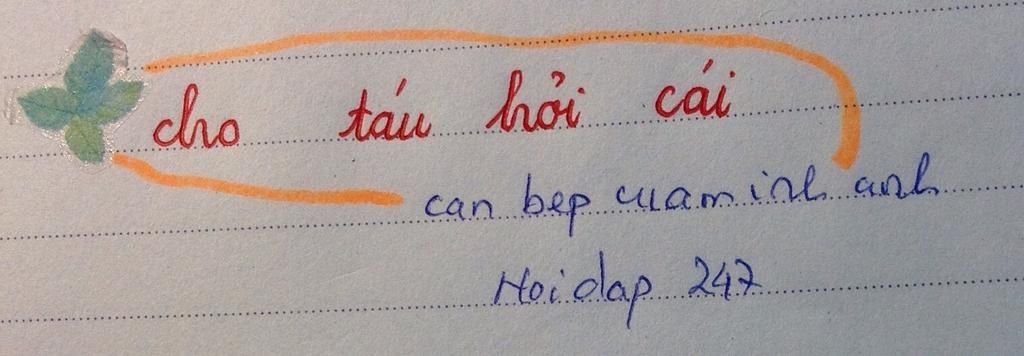 cho táu hỏi cái
can bep cuaminh anh
Hoidap 247